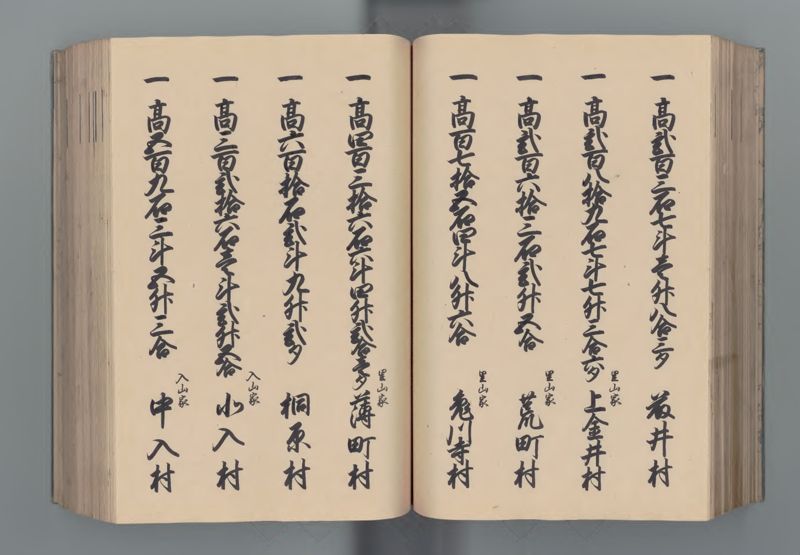 一 高弐百三石七斗壱升八合三夕 荻井村
一 高弐百八拾九石七斗七升三合六夕 里山家 上金井村
一 高弐百六拾三石弐升五合 里山家 荒町村
一 高百七拾五石四斗八升六合 里山家 兎川寺村
一 高四百三拾六石六斗四升弐合壱夕 里山家 薄町村
一 高六百拾石弐斗九升弐夕 桐原村
一 高三百弐拾六石壱斗弐升五合 入山家 北入村
一 高五百九石三斗五升三合 入山家 中入村